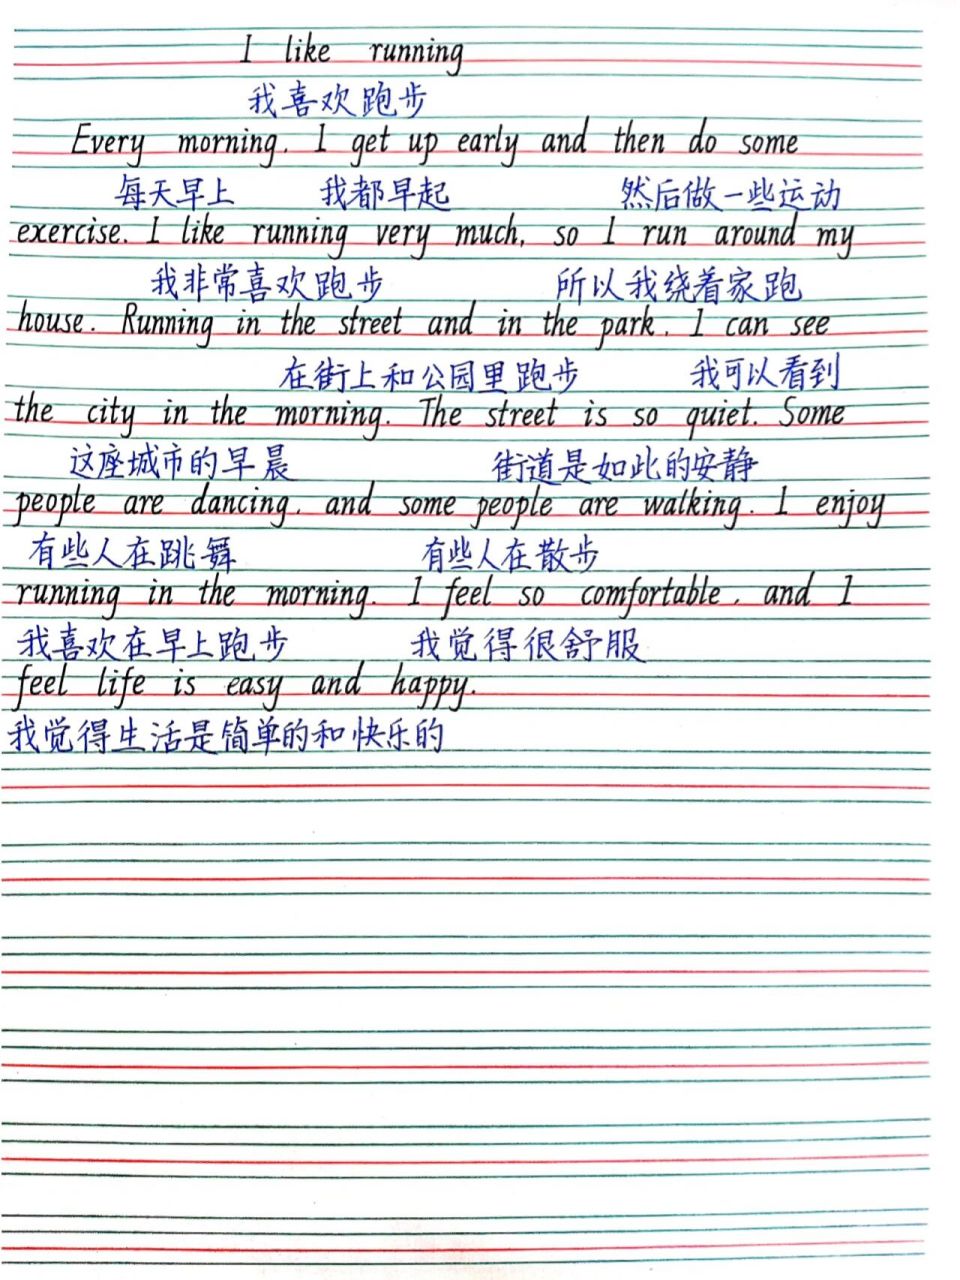 I like running
我喜欢跑步
Every morning. I get up early and then do some
每天早上 我都早起 然后做一些运动
exercise. I like running very much, so I run around my
我非常喜欢跑步 所以我绕着家跑
house. Running in the street and in the park. I can see
在街上和公园里跑步 我可以看到
the city in the morning. The street is so quiet. Some
这座城市的早晨 街道是如此的安静
people are dancing. and some people are walking. I enjoy
有些人在跳舞 有些人在散步
running in the morning. I feel so comfortable. and I
我喜欢在早上跑步 我觉得很舒服
feel life is easy and happy.
我觉得生活是简单的和快乐的